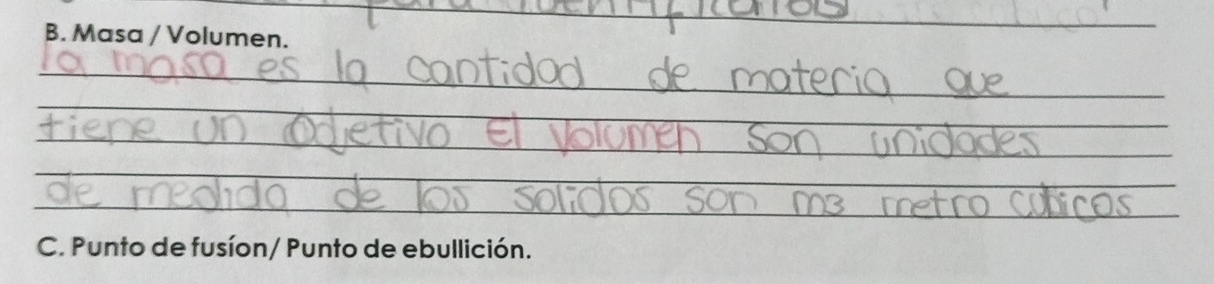 para identificarlos
B. Masa / Volumen.
la masa es la cantidad de materia que
tiene un odjetivo El volumen son unidades
de medida de los solidos son m3 metro cubicos
C. Punto de fusíon/ Punto de ebullición.